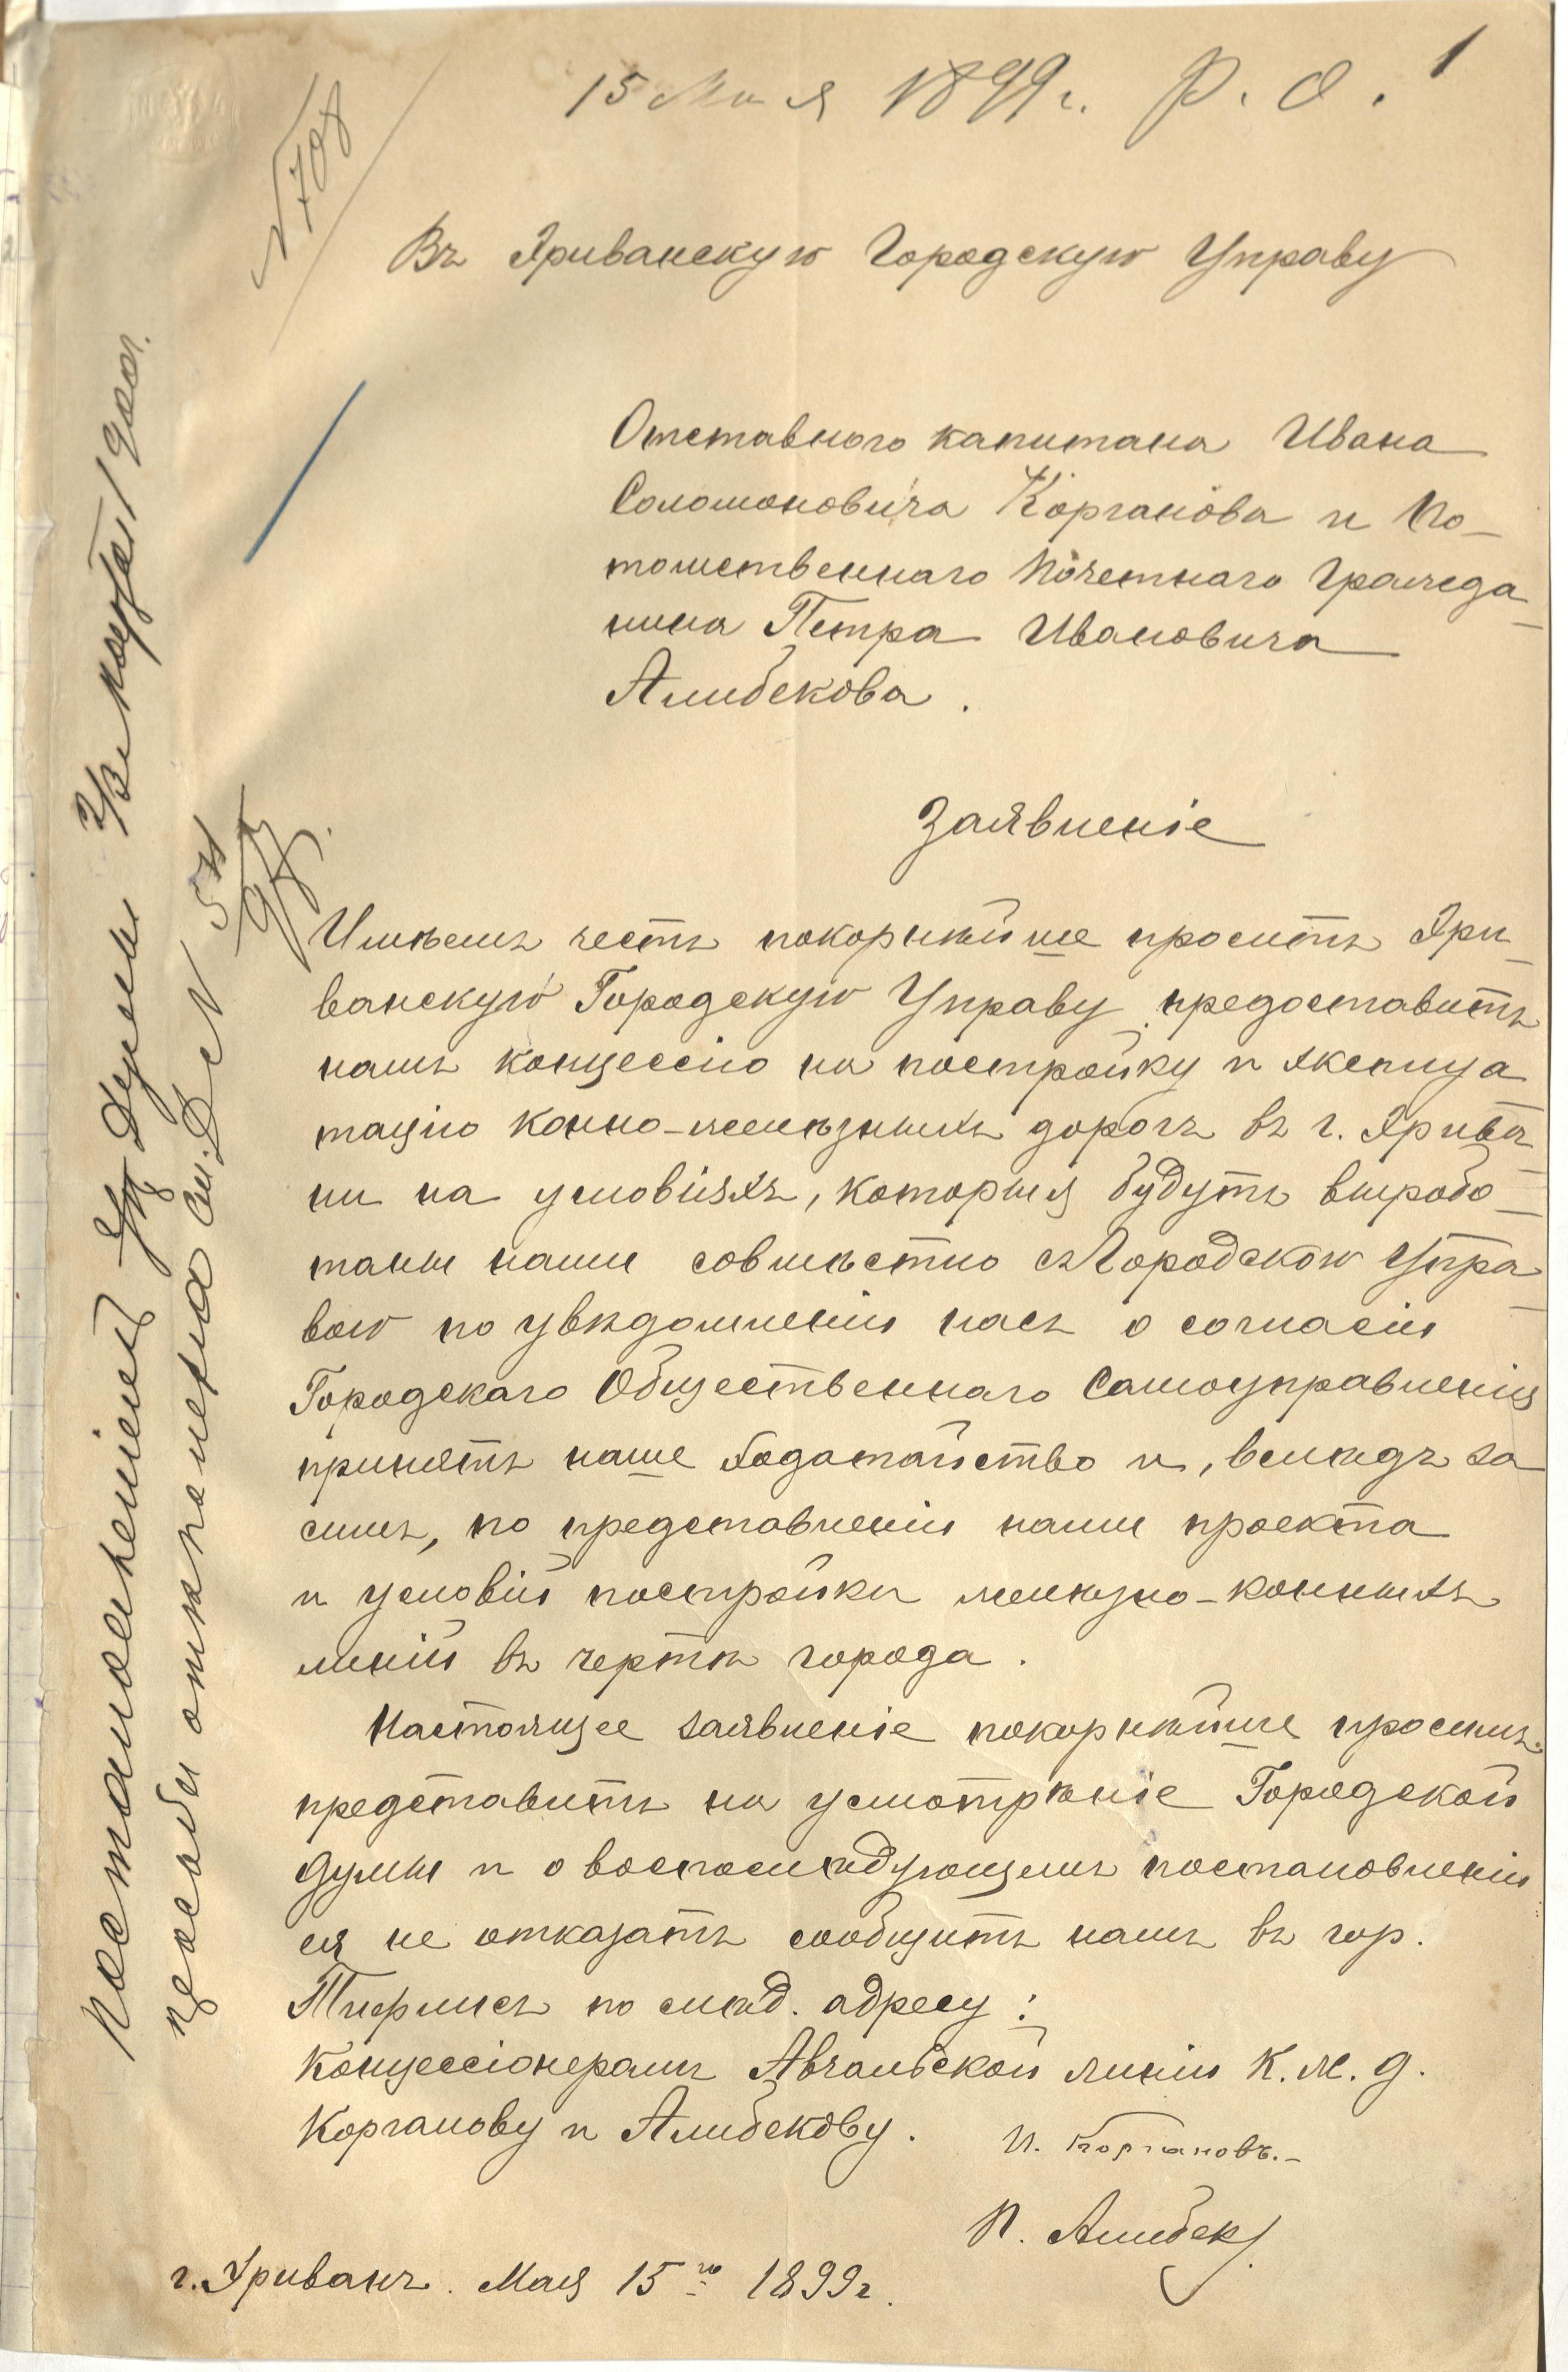 15 Мая 1899 г. Р. О. 1
№ 708
Въ Эриванскую Городскую Управу
Отставного капитана Ивана
Соломоновича Корганова и По-
томственнаго Почетнаго Гражда-
нина Петра Ивановича
Алибекова.
Заявленіе
Имѣемъ честь покорнѣйше просить Эри-
ванскую Городскую Управу предоставить
намъ концессію на постройку и экснлуа
тацію конно-желѣзныхъ дорогъ въ г. Эрива-
ни на условіяхъ, которыя будутъ вырабо-
таны нами совмѣстно съ Городскою Упра-
вою по увѣдомленіи насъ о согласіи
Городскаго Общественнаго Самоуправленія
принять наше ходатайство и, вслѣдъ за
симъ, по представленіи нами проекта
и условій постройки желѣзно-конныхъ
линій въ чертѣ города.
Настоящее заявленіе покорнѣйше просимъ
представить на усмотрѣніе Городской
Думы и о воспослѣдующемъ постановленіи
ея не отказать сообщить намъ въ гор.
Тифлисъ по слѣд. адресу:
Концессіонерамъ Авчальской линіи К. Ж. Д.
Корганову и Алибекову.
И. Коргановъ.-
П. Алибек
г. Эривань. Мая 15го 1899 г.
Постановленіемъ Думы 1900 г.
отклонена См. Дѣл №